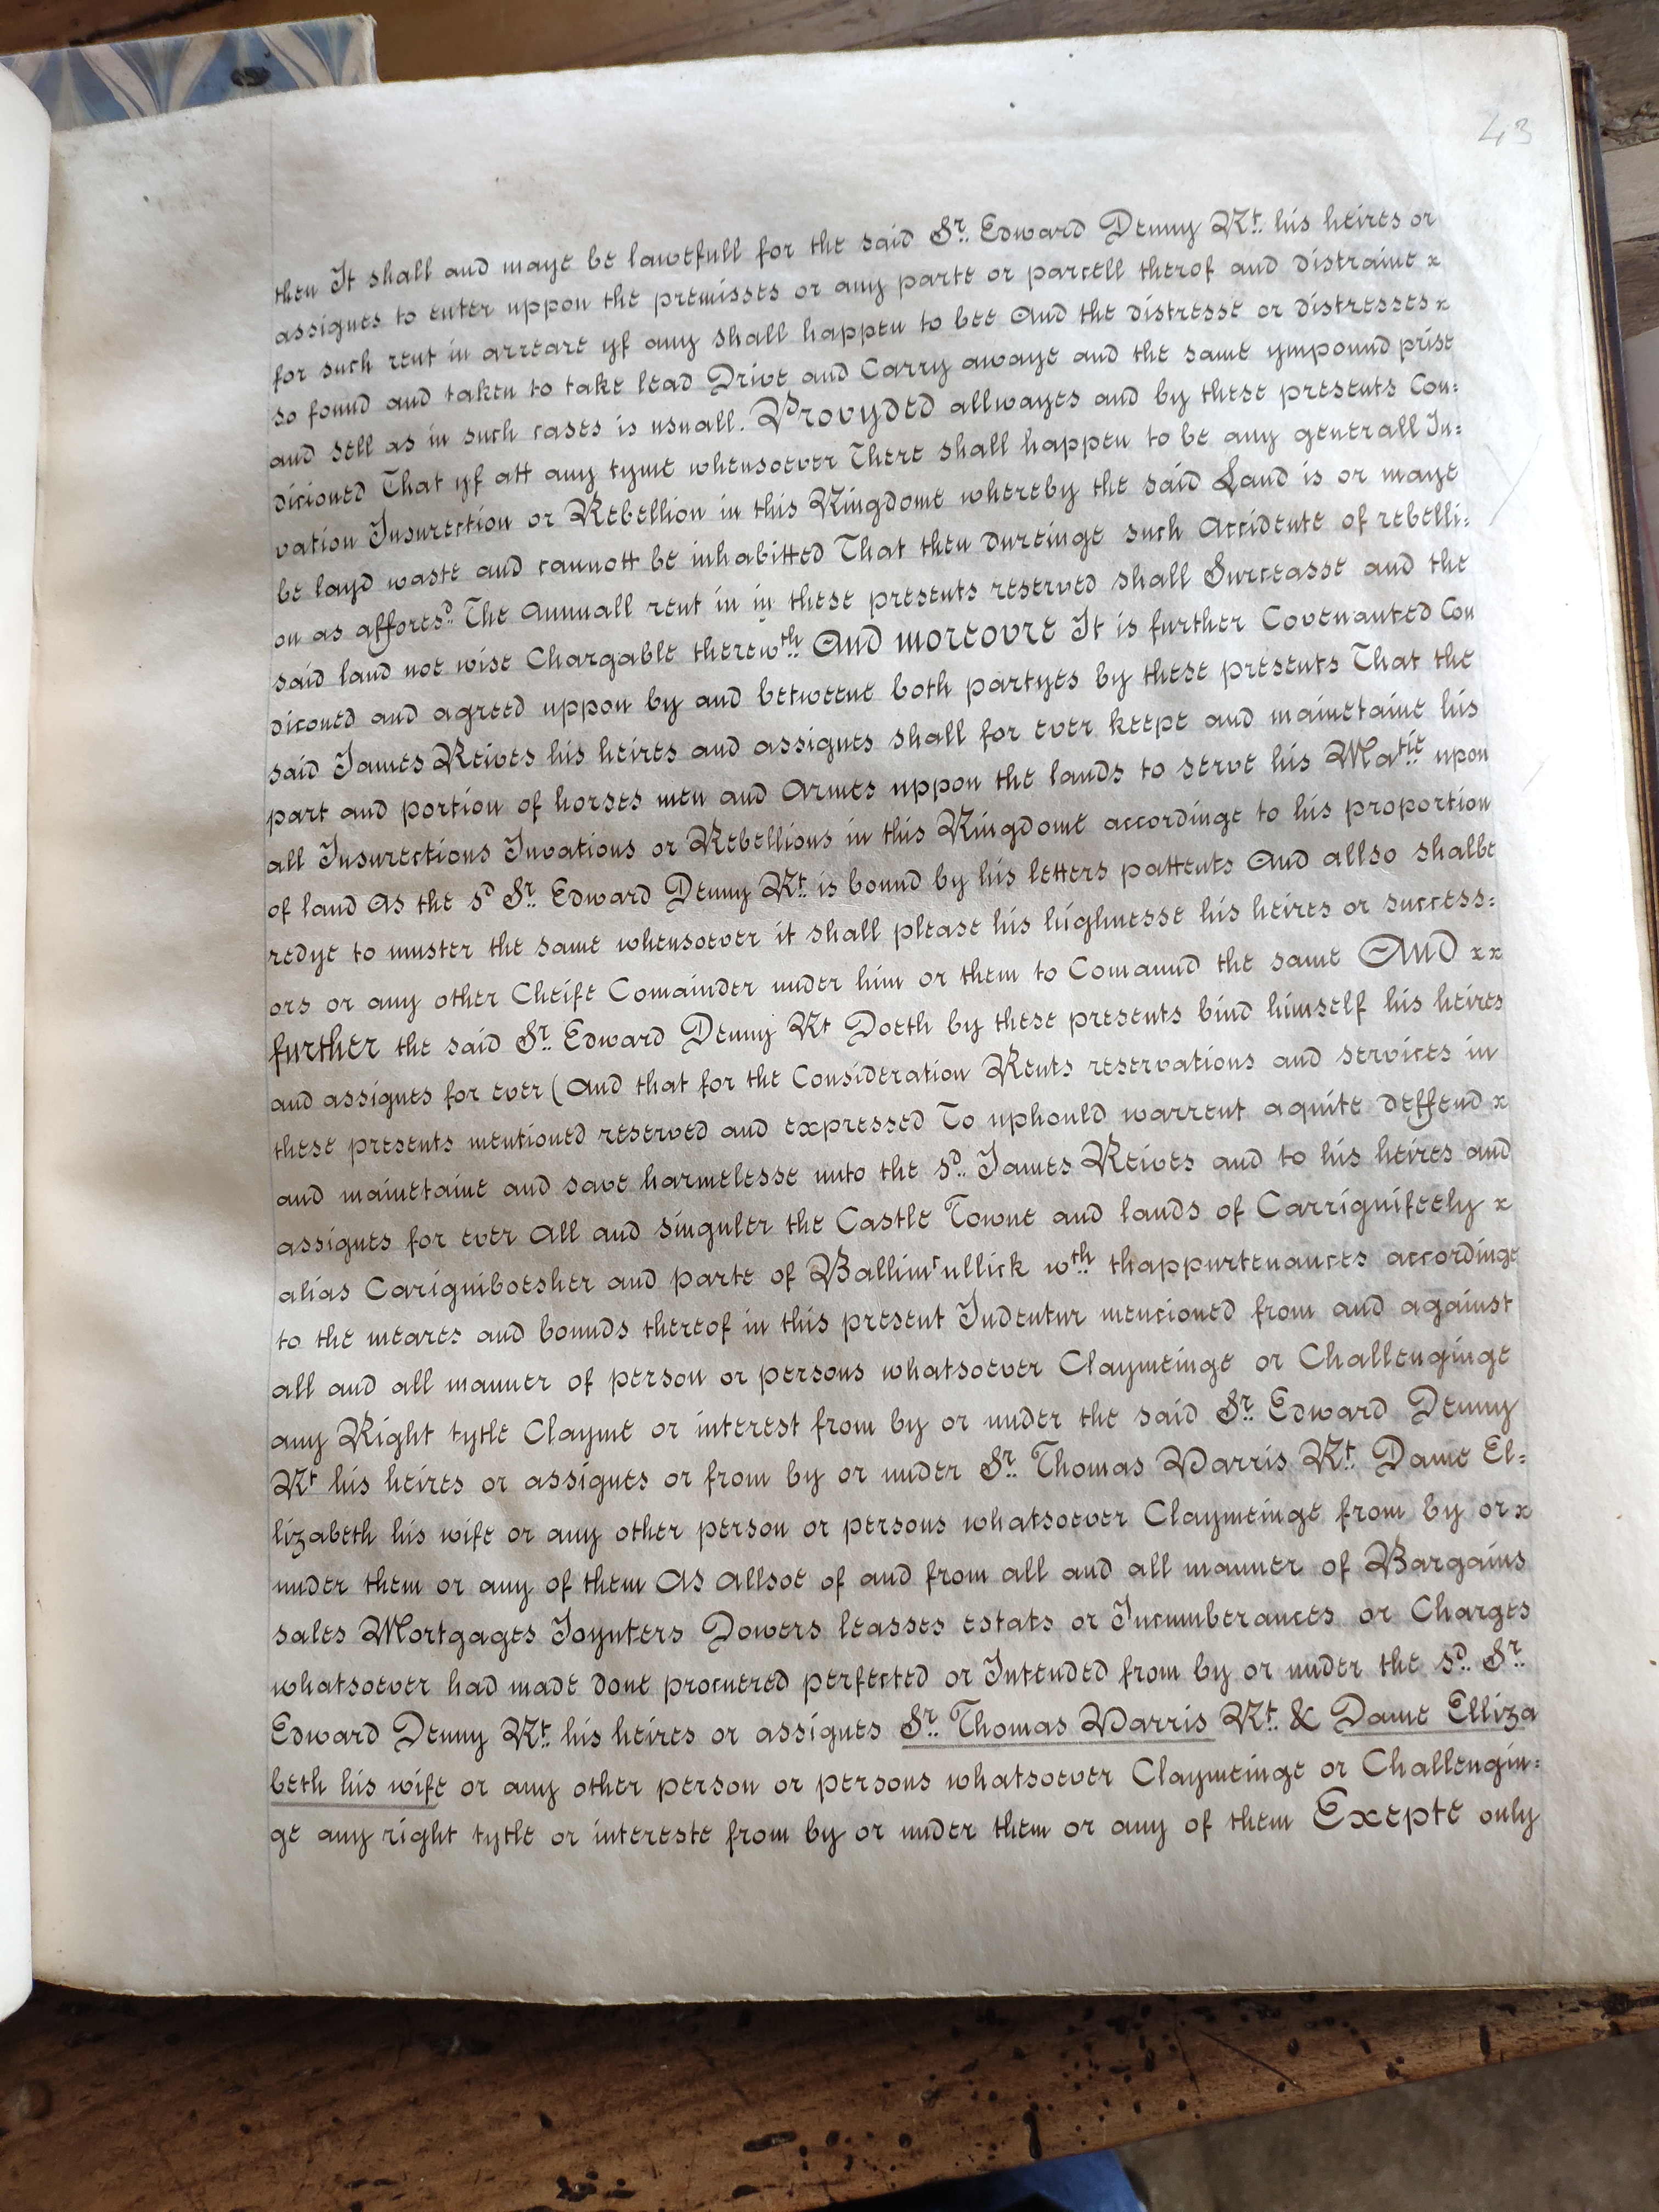 43
then It shall and maye be lawefull for the said Sr. Edward Denny Kt. his heires or
assignes to enter uppon the premisses or any parte or parcell therof and distraine x
for such rent in arreare yf any shall happen to bee And the distresse or distresses x
so found and taken to take lead Drive and Carry awaye and the same ympound prise
and sell as in such cases is usuall. Provyded allwayes and by these presents Con:
dicioned That yf att any tyme whensoever There shall happen to be any generall In:
vation Insurection or Rebellion in this Kingdome whereby the said Land is or maye
be layd waste and cannott be inhabitted That then dureinge such Accidente of rebelli:
on as affores.d The Annuall rent in in these presents reserved shall Surceasse and the
said land noe wise Chargable therewth. And moreovre It is further Covenanted Con
diconed and agreed uppon by and betweene both partyes by these presents That the
said James Reives his heires and assignes shall for ever keepe and mainetaine his
part and portion of horses men and Armes uppon the lands to serve his Matie upon
all Insurections Invations or Rebellions in this Kingdome accordinge to his proportion
of land As the sd Sr. Edward Denny Kt. is bound by his letters pattents And allso shalbe
redye to muster the same whensoever it shall please his highnesse his heires or success:
ors or any other Cheife Comainder under him or them to Comaund the same AND xx
further the said Sr. Edward Denny Kt Doeth by these presents bind himself his heires
and assignes for ever (And that for the Consideration Rents reservations and services in
these presents mentioned reserved and expressed To uphould warrent aquite deffend x
and mainetaine and save harmelesse unto the sd. James Reives and to his heires and
assignes for ever All and singuler the Castle Towne and lands of Carrignifeely x
alias Carigniboesher and parte of Ballimcullick wth. thappurtenances accordinge
to the meares and bounds thereof in this present Indentur mencioned from and against
all and all manner of person or persons whatsoever Claymeinge or Challenginge
any Right tytle Clayme or interest from by or under the said Sr. Edward Denny
Kt his heires or assignes or from by or under Sr. Thomas Varris Kt. Dame El:
lizabeth his wife or any other person or persons whatsoever Claymeinge from by or x
under them or any of them As Allsoe of and from all and all manner of Bargains
sales Mortgages Joynters Dowers leasses estats or Incumberances or Charges
whatsoever had made done procuered perfected or Intended from by or under the sd. Sr.
Edward Denny Kt. his heires or assignes Sr. Thomas Varris Kt. & Dame Elliza
beth his wife or any other person or persons whatsoever Claymeinge or Challengin:
ge any right tytle or intereste from by or under them or any of them Exepte only